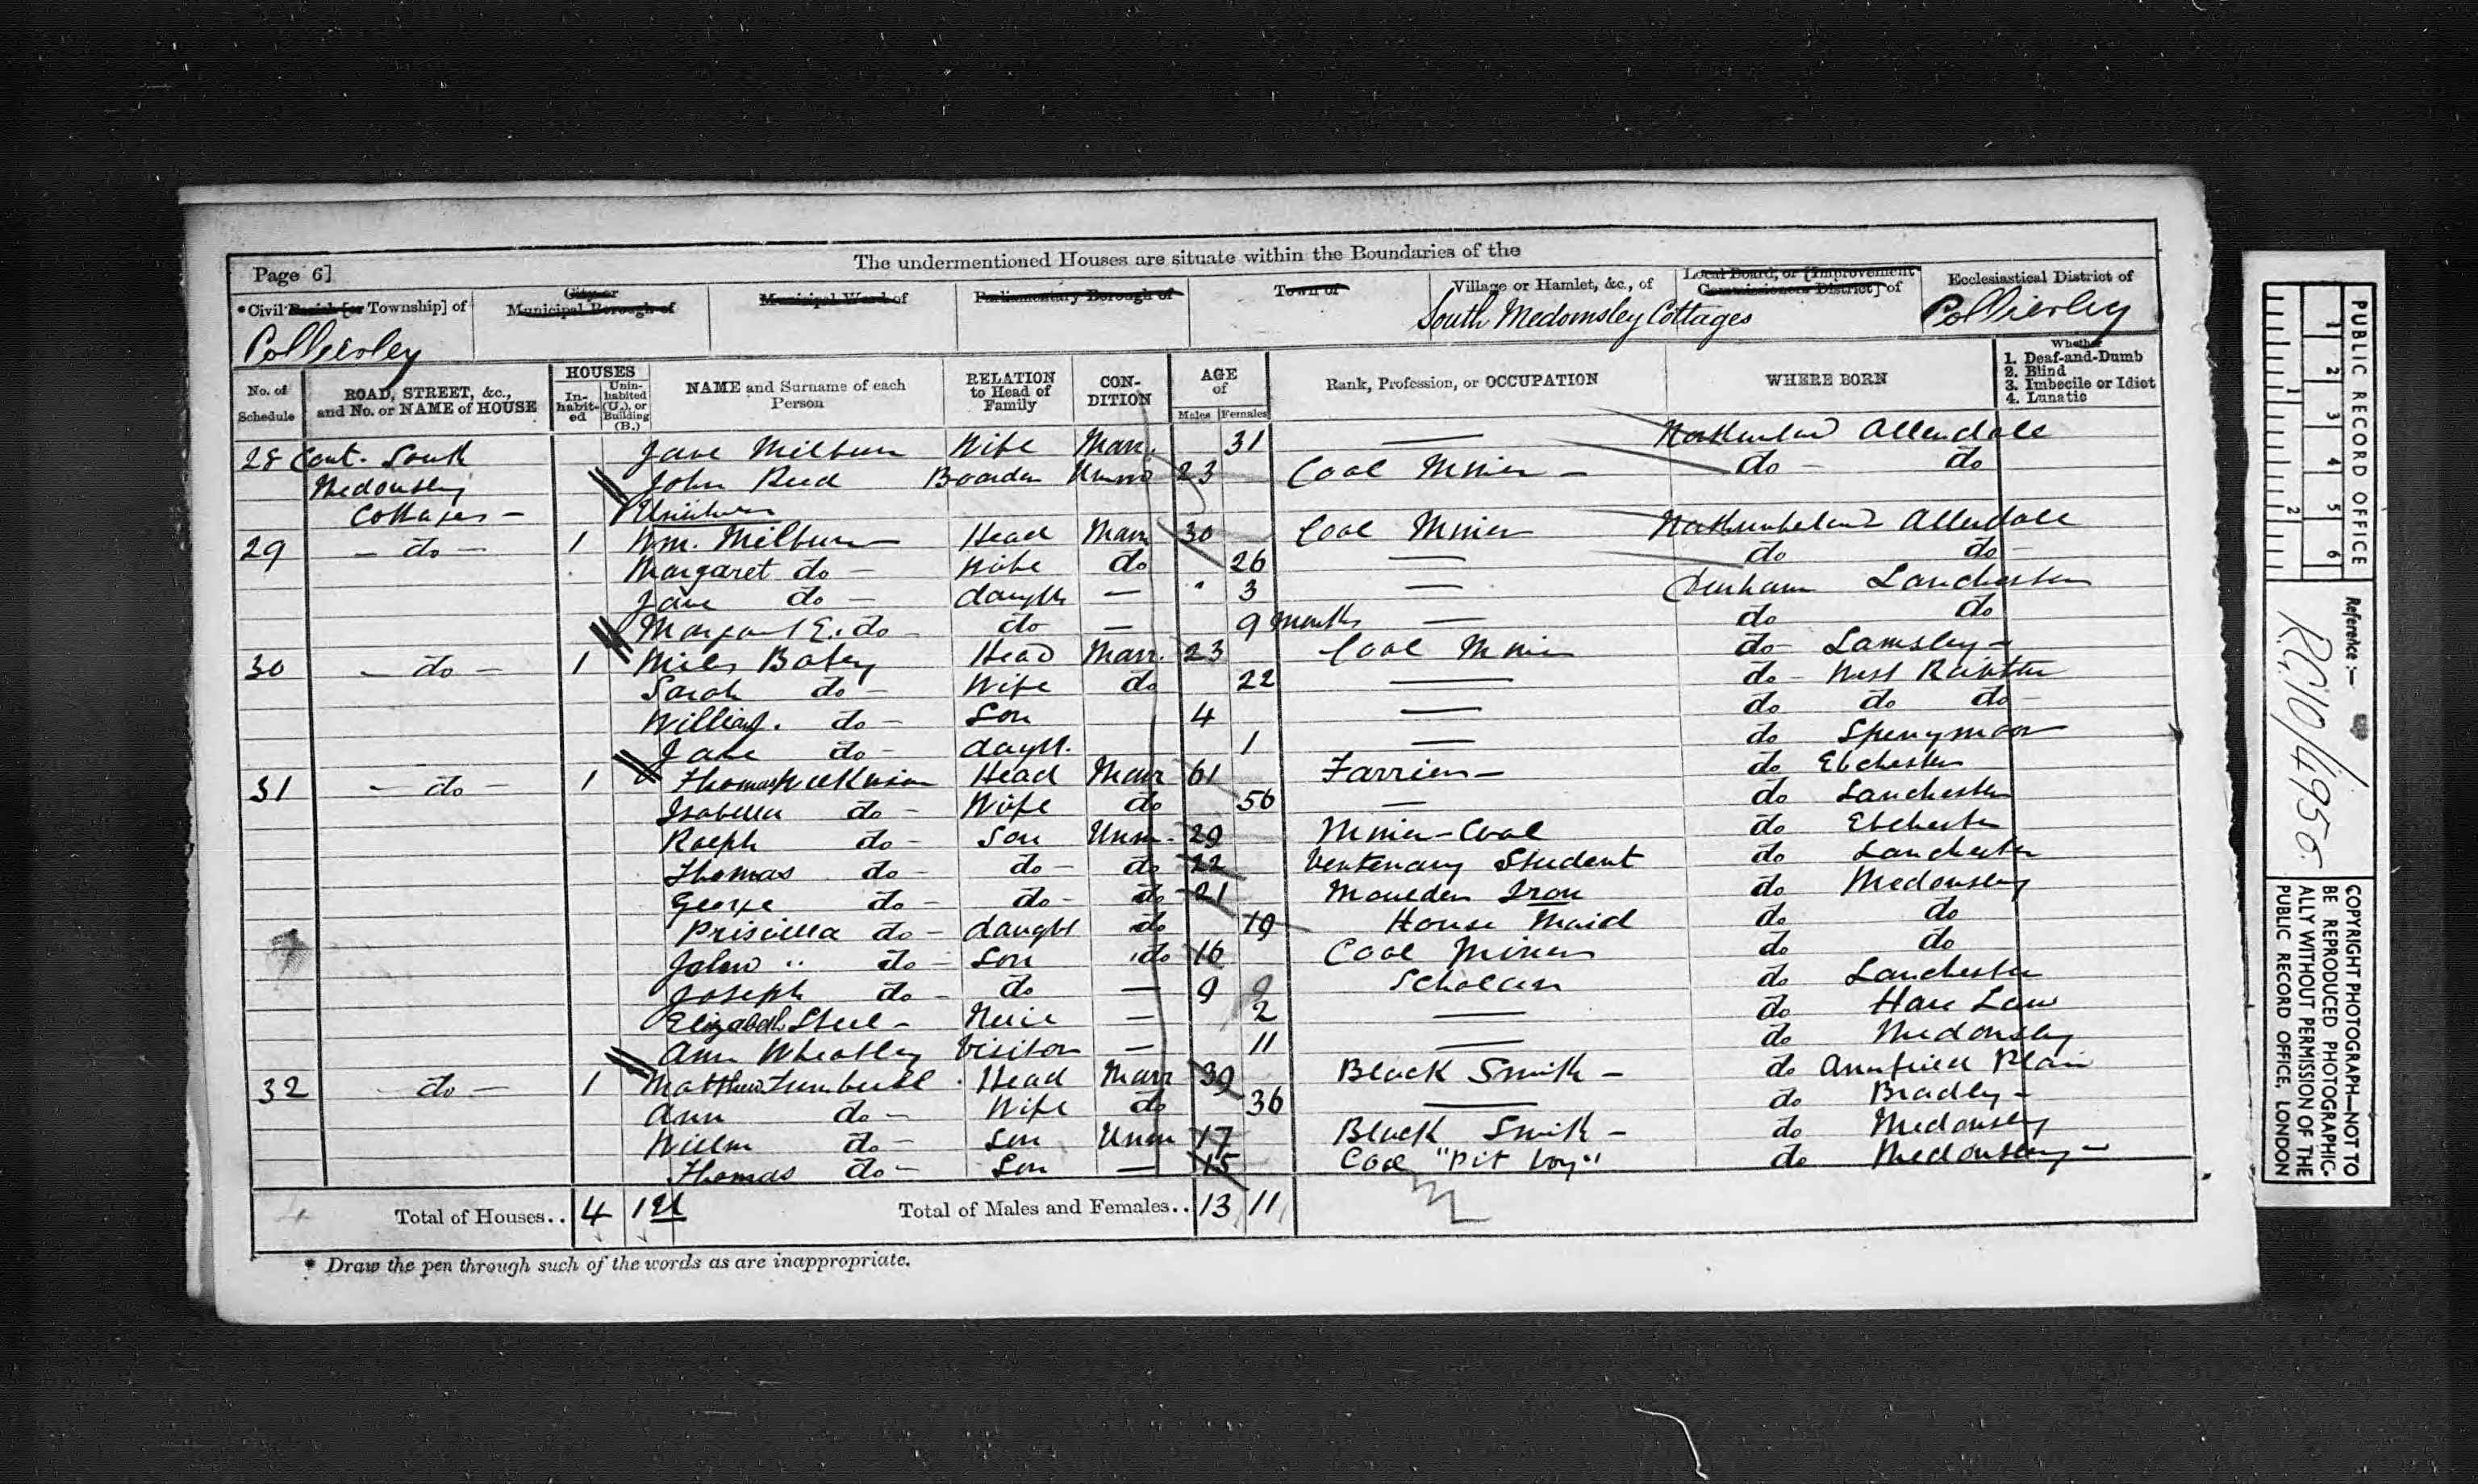 Page 6]
The undermentioned Houses are situate within the Boundaries of the
*Civil Parish [or Township] of
City or Municipal Borough of
Municipal Ward of
Parliamentary Borough of
Town of
Village or Hamlet, &c., of
Local Board, or [Improvement Commissioners District] of
Ecclesiastical District of
Collierley
South Medomsley Cottages
Collierley
No. of Schedule
ROAD, STREET, &c., and No. or NAME of HOUSE
HOUSES
In-habit-ed
Unin-habited (U.), or Building (B.)
NAME and Surname of each Person
RELATION to Head of Family
CON-DITION
AGE of
Males Females
Rank, Profession, or OCCUPATION
WHERE BORN
Whether
1. Deaf-and-Dumb
2. Blind
3. Imbecile or Idiot
4. Lunatic
28 Cont. South Jane Milburn Wife Marr. 31 — Allendale
Medomsley John Reed Boarder Unm 23 Coal Miner — do — do
Cottages —
29 — do — 1 Wm. Milburn Head Marr 30 Coal Miner Northumberland Allendale
Margaret do — Wife do 26 — do do —
Jane do — daughtr — 3 — Durham Lanchester
Margaret E. do — do — 9 months — do do
30 — do — 1 Miles Head Marr. 23 Coal Miner do — Lamsley —
Sarah do — Wife do 22 — do — West Rainton
William. do — Son 4 — do do do —
Jane do — daugtr. 1 — do Spenymoor
31 — do — 1 Thomas Head Marr 61 Farrier — do Ebchester
Isabella do — Wife do 56 — do Lanchester
Ralph do — Son Unm. 29 Miner — Coal do Ebchester
Thomas do — do — do 22 Student do Lanchester
George do — do — do 21 Moulder Iron do Medomsley
Priscilla do — daught do 19 House Maid do do
John " do — Son do 16 Coal Miner do do
Joseph do — do — 9 Scholar do Lanchester
Elizabeth Steel — Neice — 2 — do Hare Law
Ann Wheatley Visitor — 11 — do Medomsley
32 — do — 1 Matthew Turnbull Head Marr 39 Black Smith — do Annfield Plain
Ann do — Wife do 36 — do Bradley —
Willm do — Son Unm 17 Black Smith — do Medomsley
Thomas do — Son — 15 Coal "Pit boy" do Medomsley —
Total of Houses.. 4 1 Total of Males and Females.. 13 11
* Draw the pen through such of the words as are inappropriate.
PUBLIC RECORD OFFICE
1 2 3 4 5 6
1 2
Reference :—
R.G.10/4956
COPYRIGHT PHOTOGRAPH—NOT TO
BE REPRODUCED PHOTOGRAPHIC-
ALLY WITHOUT PERMISSION OF THE
PUBLIC RECORD OFFICE, LONDON